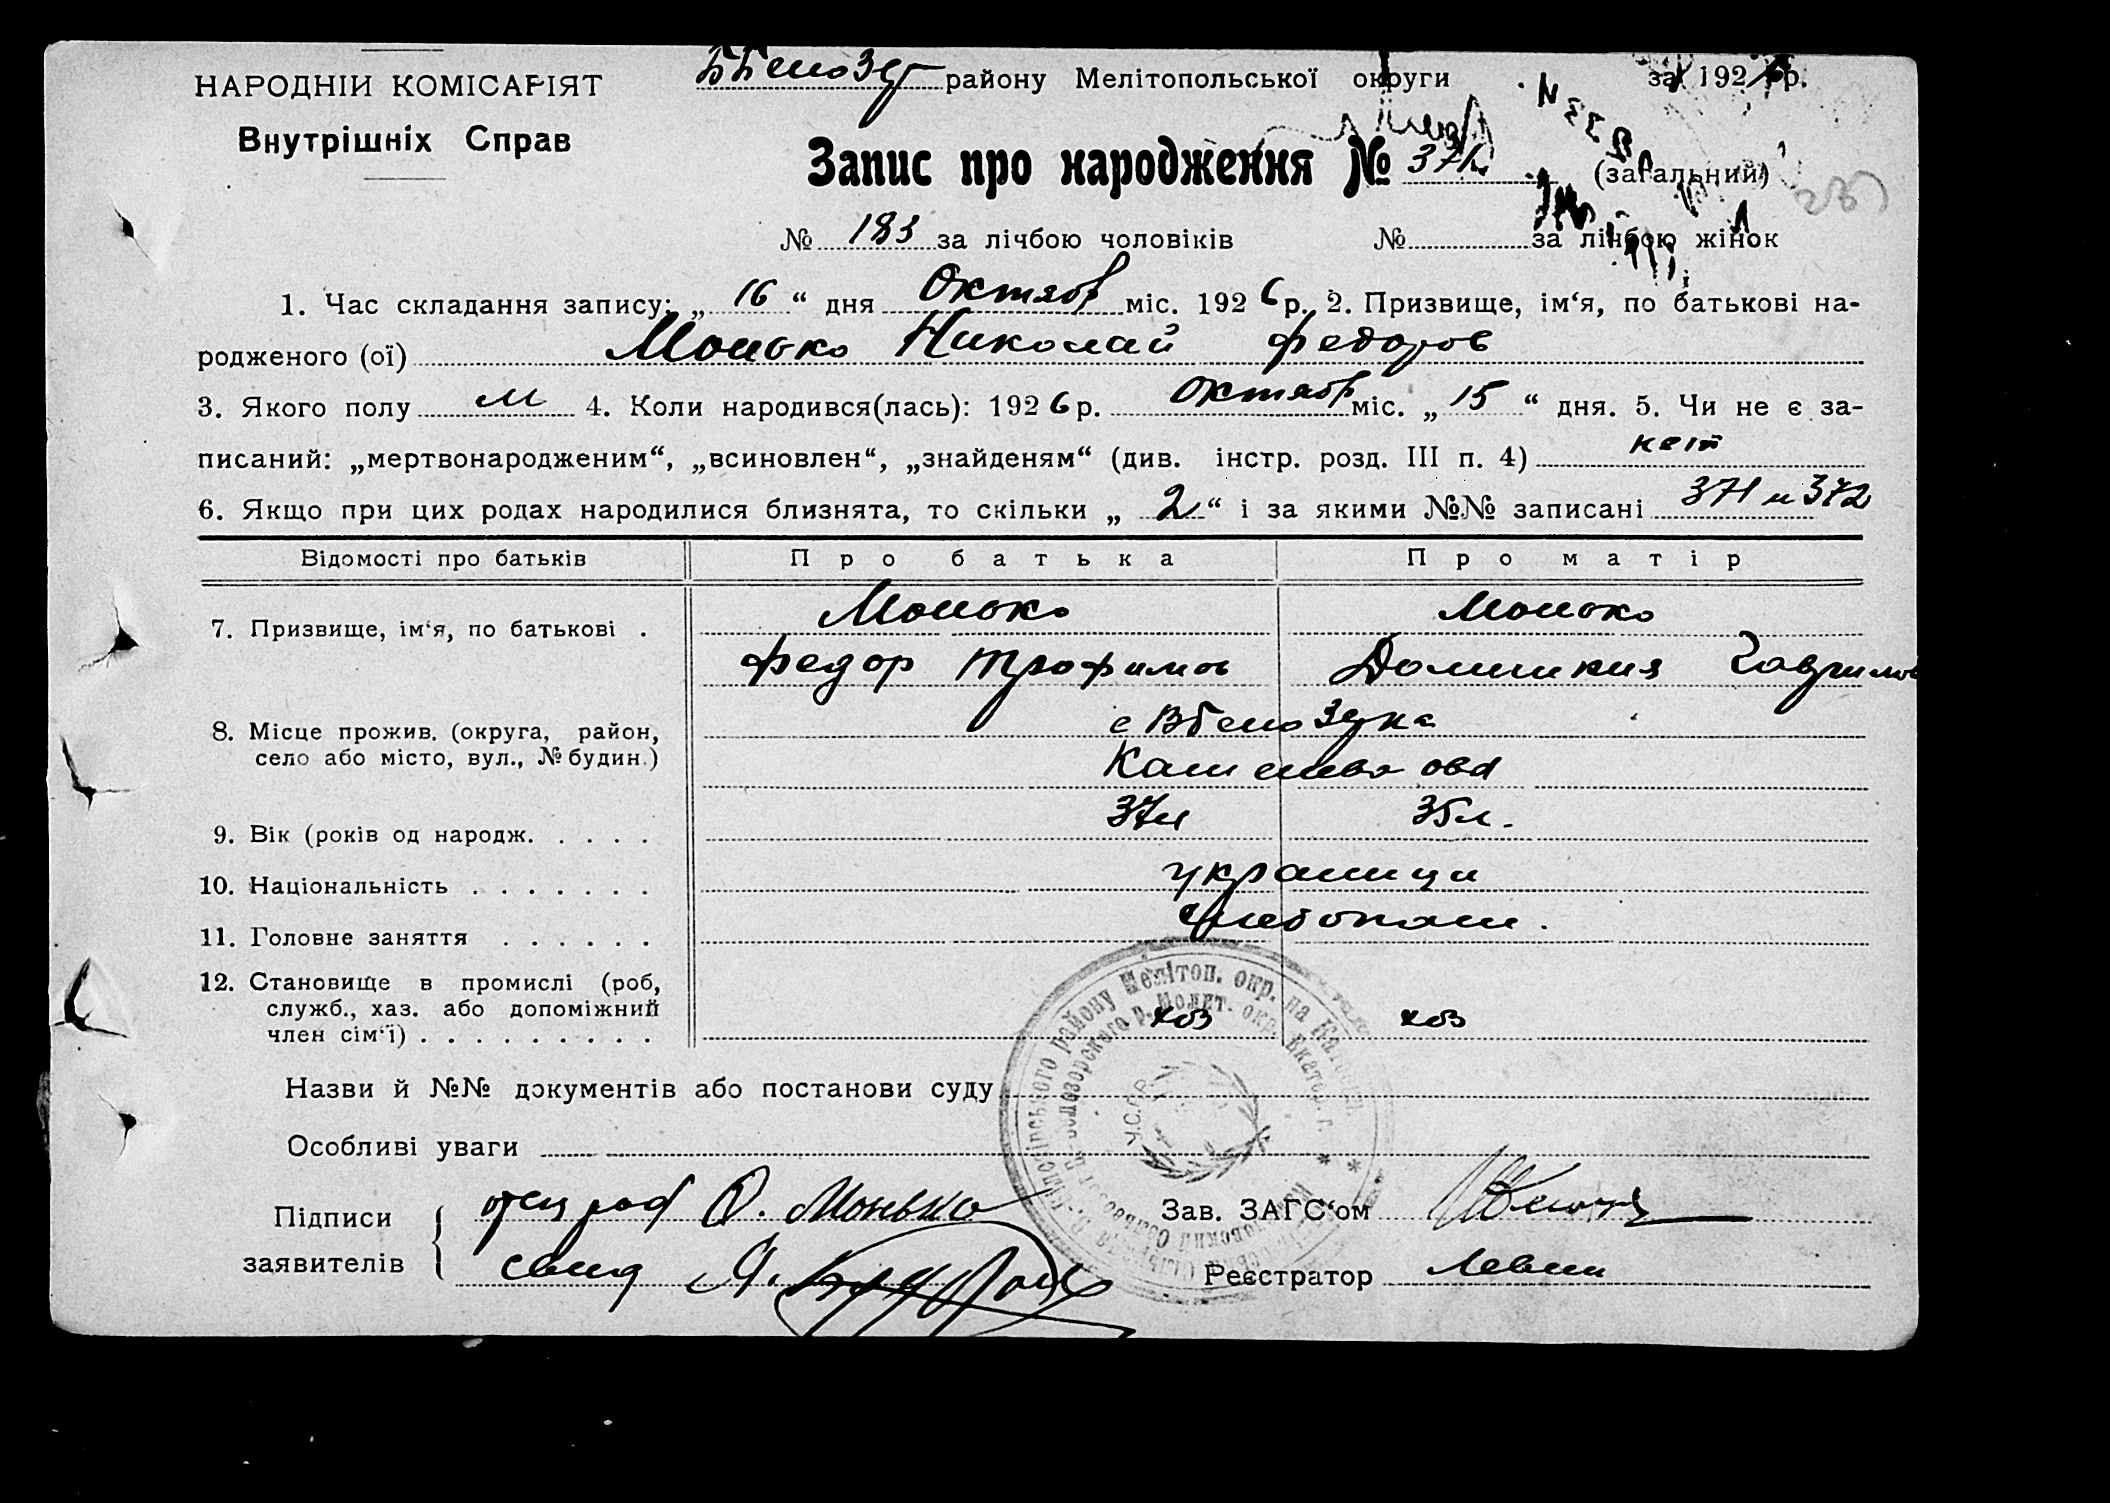 НАРОДНІЙ КОМІСАРІЯТ
Внутрішніх Справ
району Мелітопольської округи за 1926 р.
Запис про народження № 371 (загальний)
№ 183 за лічбою чоловіків № за лічбою жінок
1. Час складання запису: „ 16 “ дня Октябр міс. 192 6 р. 2. Призвище, ім‘я, по батькові на-
родженого (ої) Монько Николай Федоров
3. Якого полу м 4. Коли народився(лась): 192 6 р. Октябр міс. „ 15 “ дня. 5. Чи не є за-
писаний: „мертвонародженим“, „всиновлен“, „знайденям“ (див. інстр. розд. III п. 4) нет
6. Якщо при цих родах народилися близнята, то скільки „ 2 “ і за якими №№ записані 371 и 372
Відомості про батьків Про батька Про матір
7. Призвище, ім‘я, по батькові . Монько Монько
Федор Трофимов Домникия Гаврилов
8. Місце прожив. (округа, район, с Вбелозерка
село або місто, вул., № будин.)
9. Вік (років од народж. . . . . 37л 35л.
10. Національність . . . . . . . украинци
11. Головне заняття . . . . . . хлебопаш.
12. Становище в промислі (роб,
служб., хаз. або допоміжний хоз хоз
член сім‘ї) . . . . . . . . .
Назви й №№ документів або постанови суду
У.С.Р.Р.
Особливі уваги
Підписи Ф. Монько Зав. ЗАГС‘ом
заявителів свид Я. Реєстратор Левин